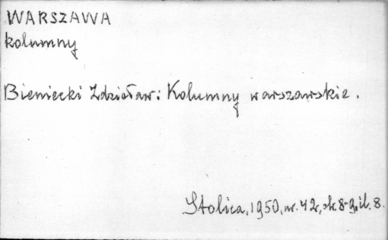 WARSZAWA
kolumny
Bieniecki Zdzisław: Kolumny warszawskie.
Stolica, 1950, nr. 42, sk 8-9, il. 8.